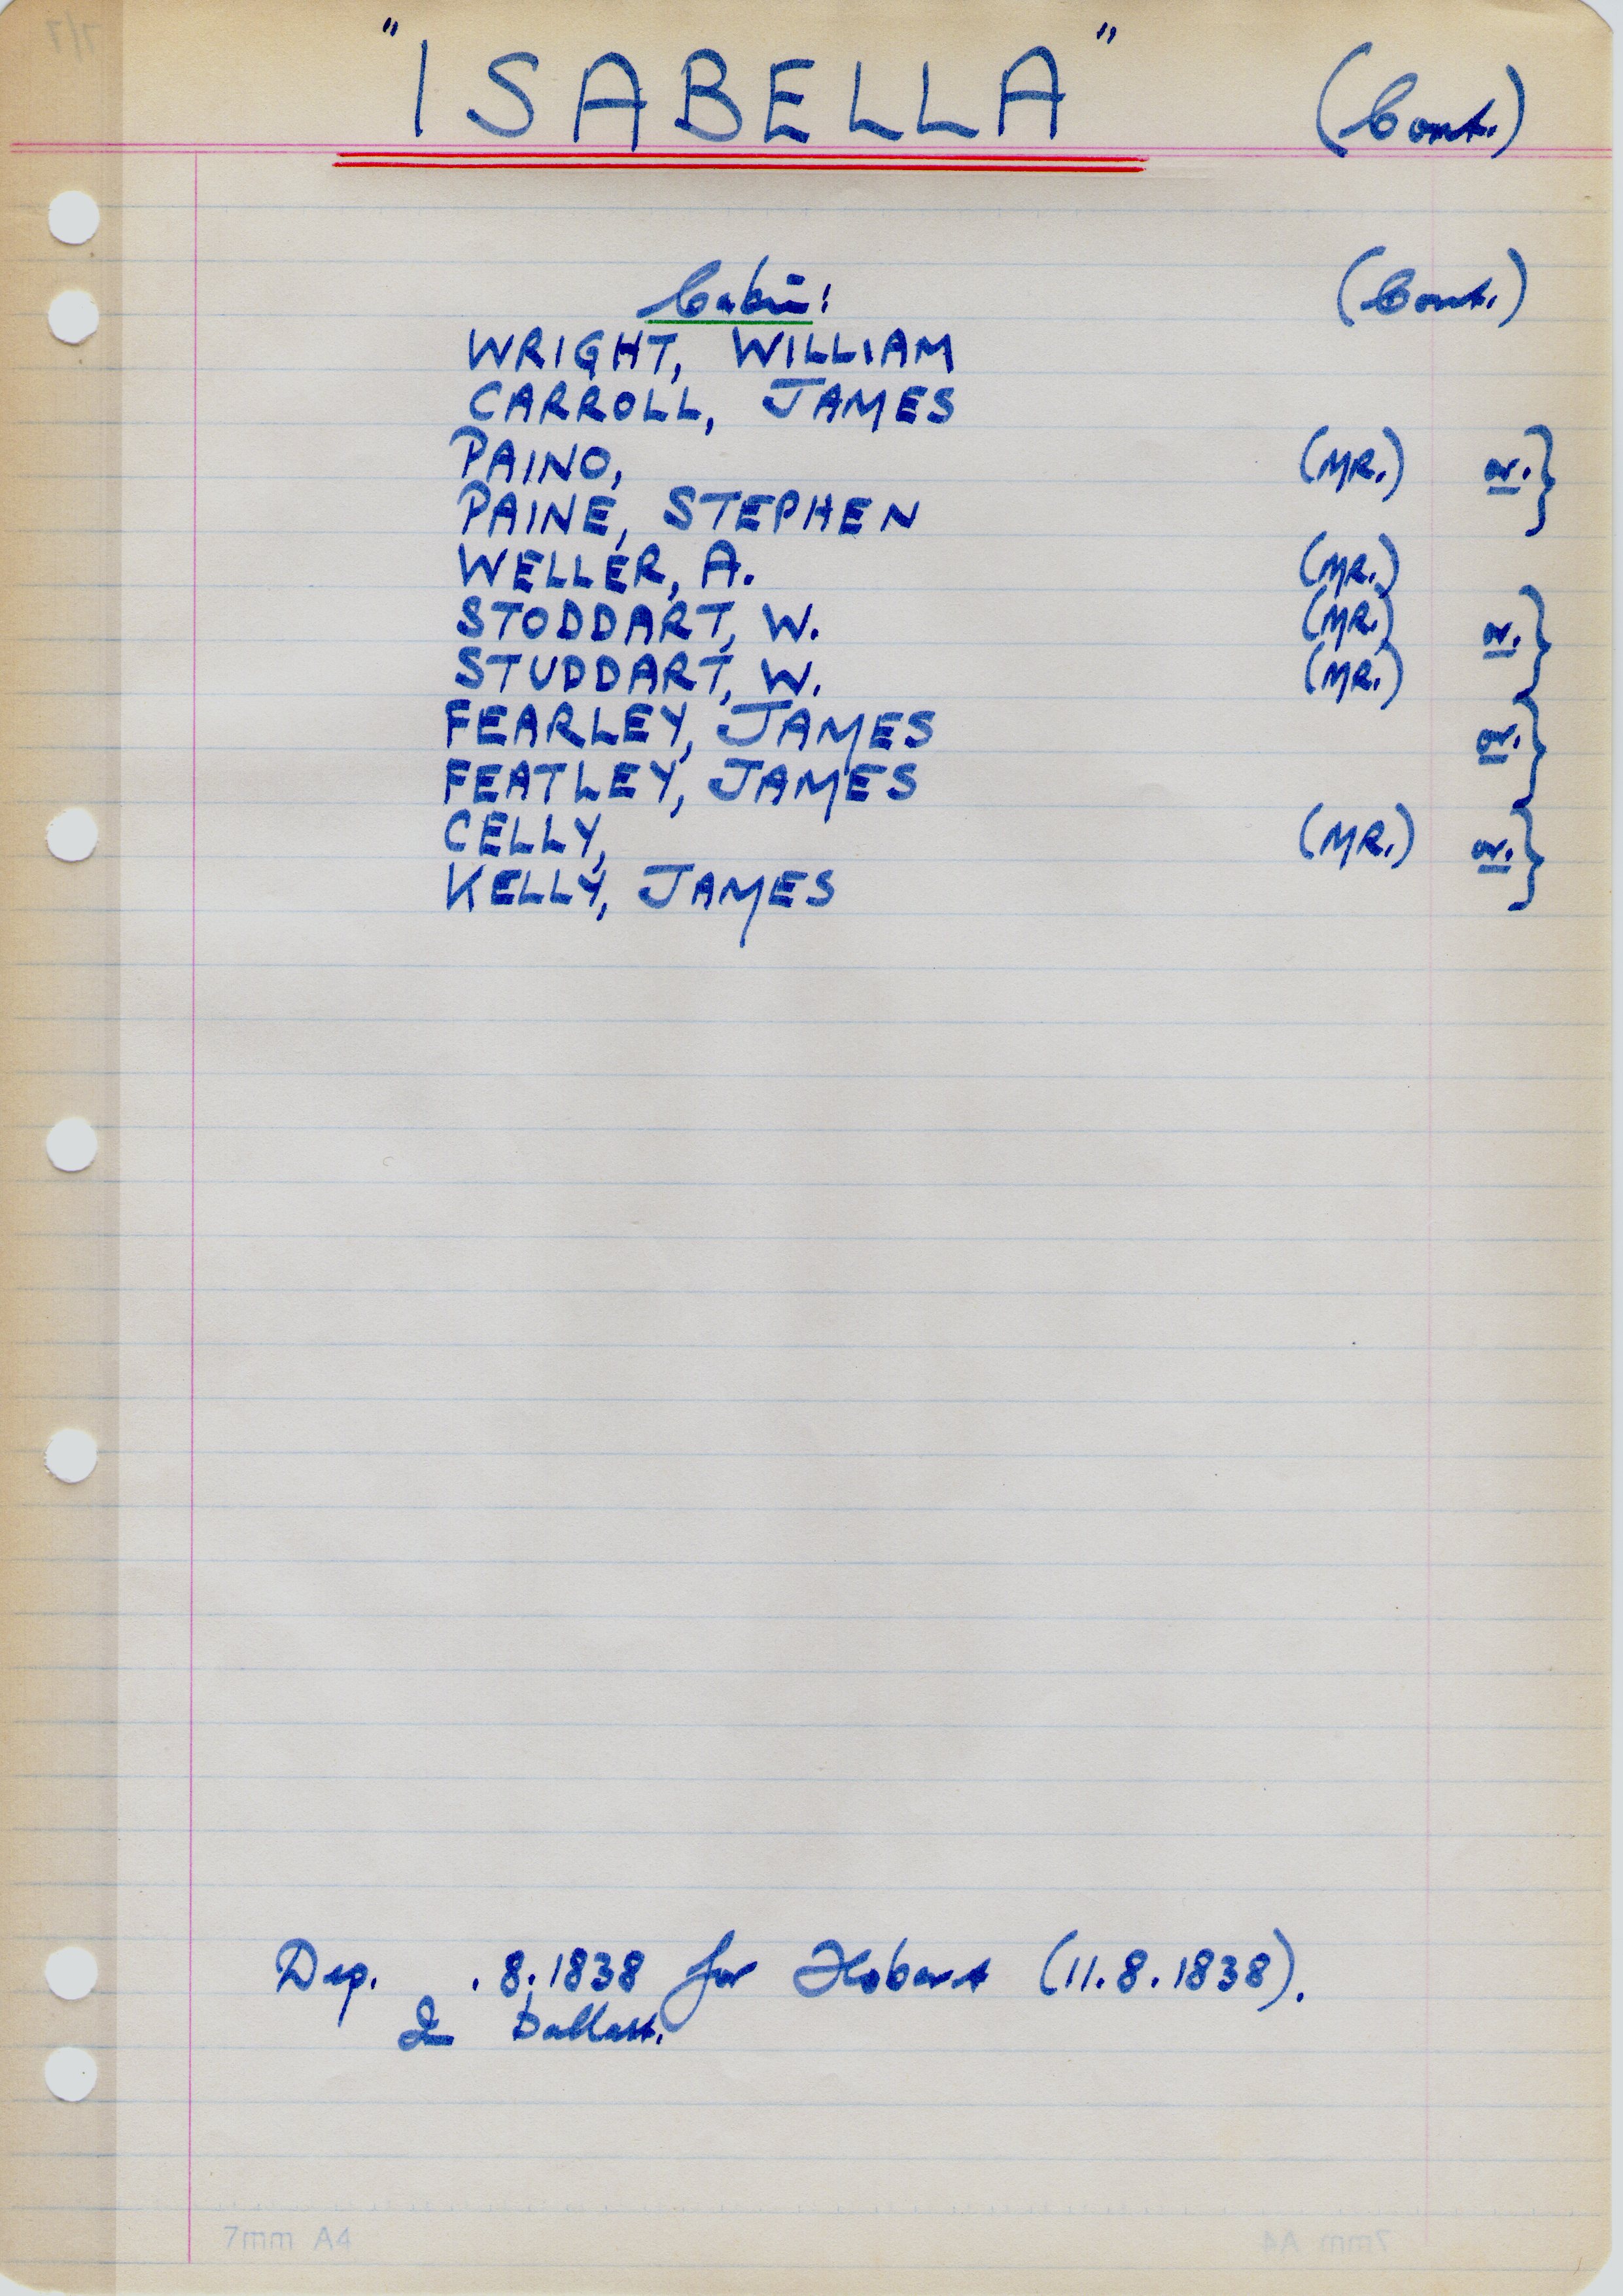 "ISABELLA" (Cont.)
Cabin: (Cont.)
WRIGHT, WILLIAM
CARROLL, JAMES
PAINO, (MR.) or. }
PAINE, STEPHEN
WELLER, A. (MR.)
STODDART, W. (MR.) or. }
STUDDART, W. (MR.)
FEARLEY, JAMES or. }
FEATLEY, JAMES
CELLY, (MR.) or. }
KELLY, JAMES
Dep. .8.1838 for Hobart (11.8.1838).
In ballast.
7mm A4